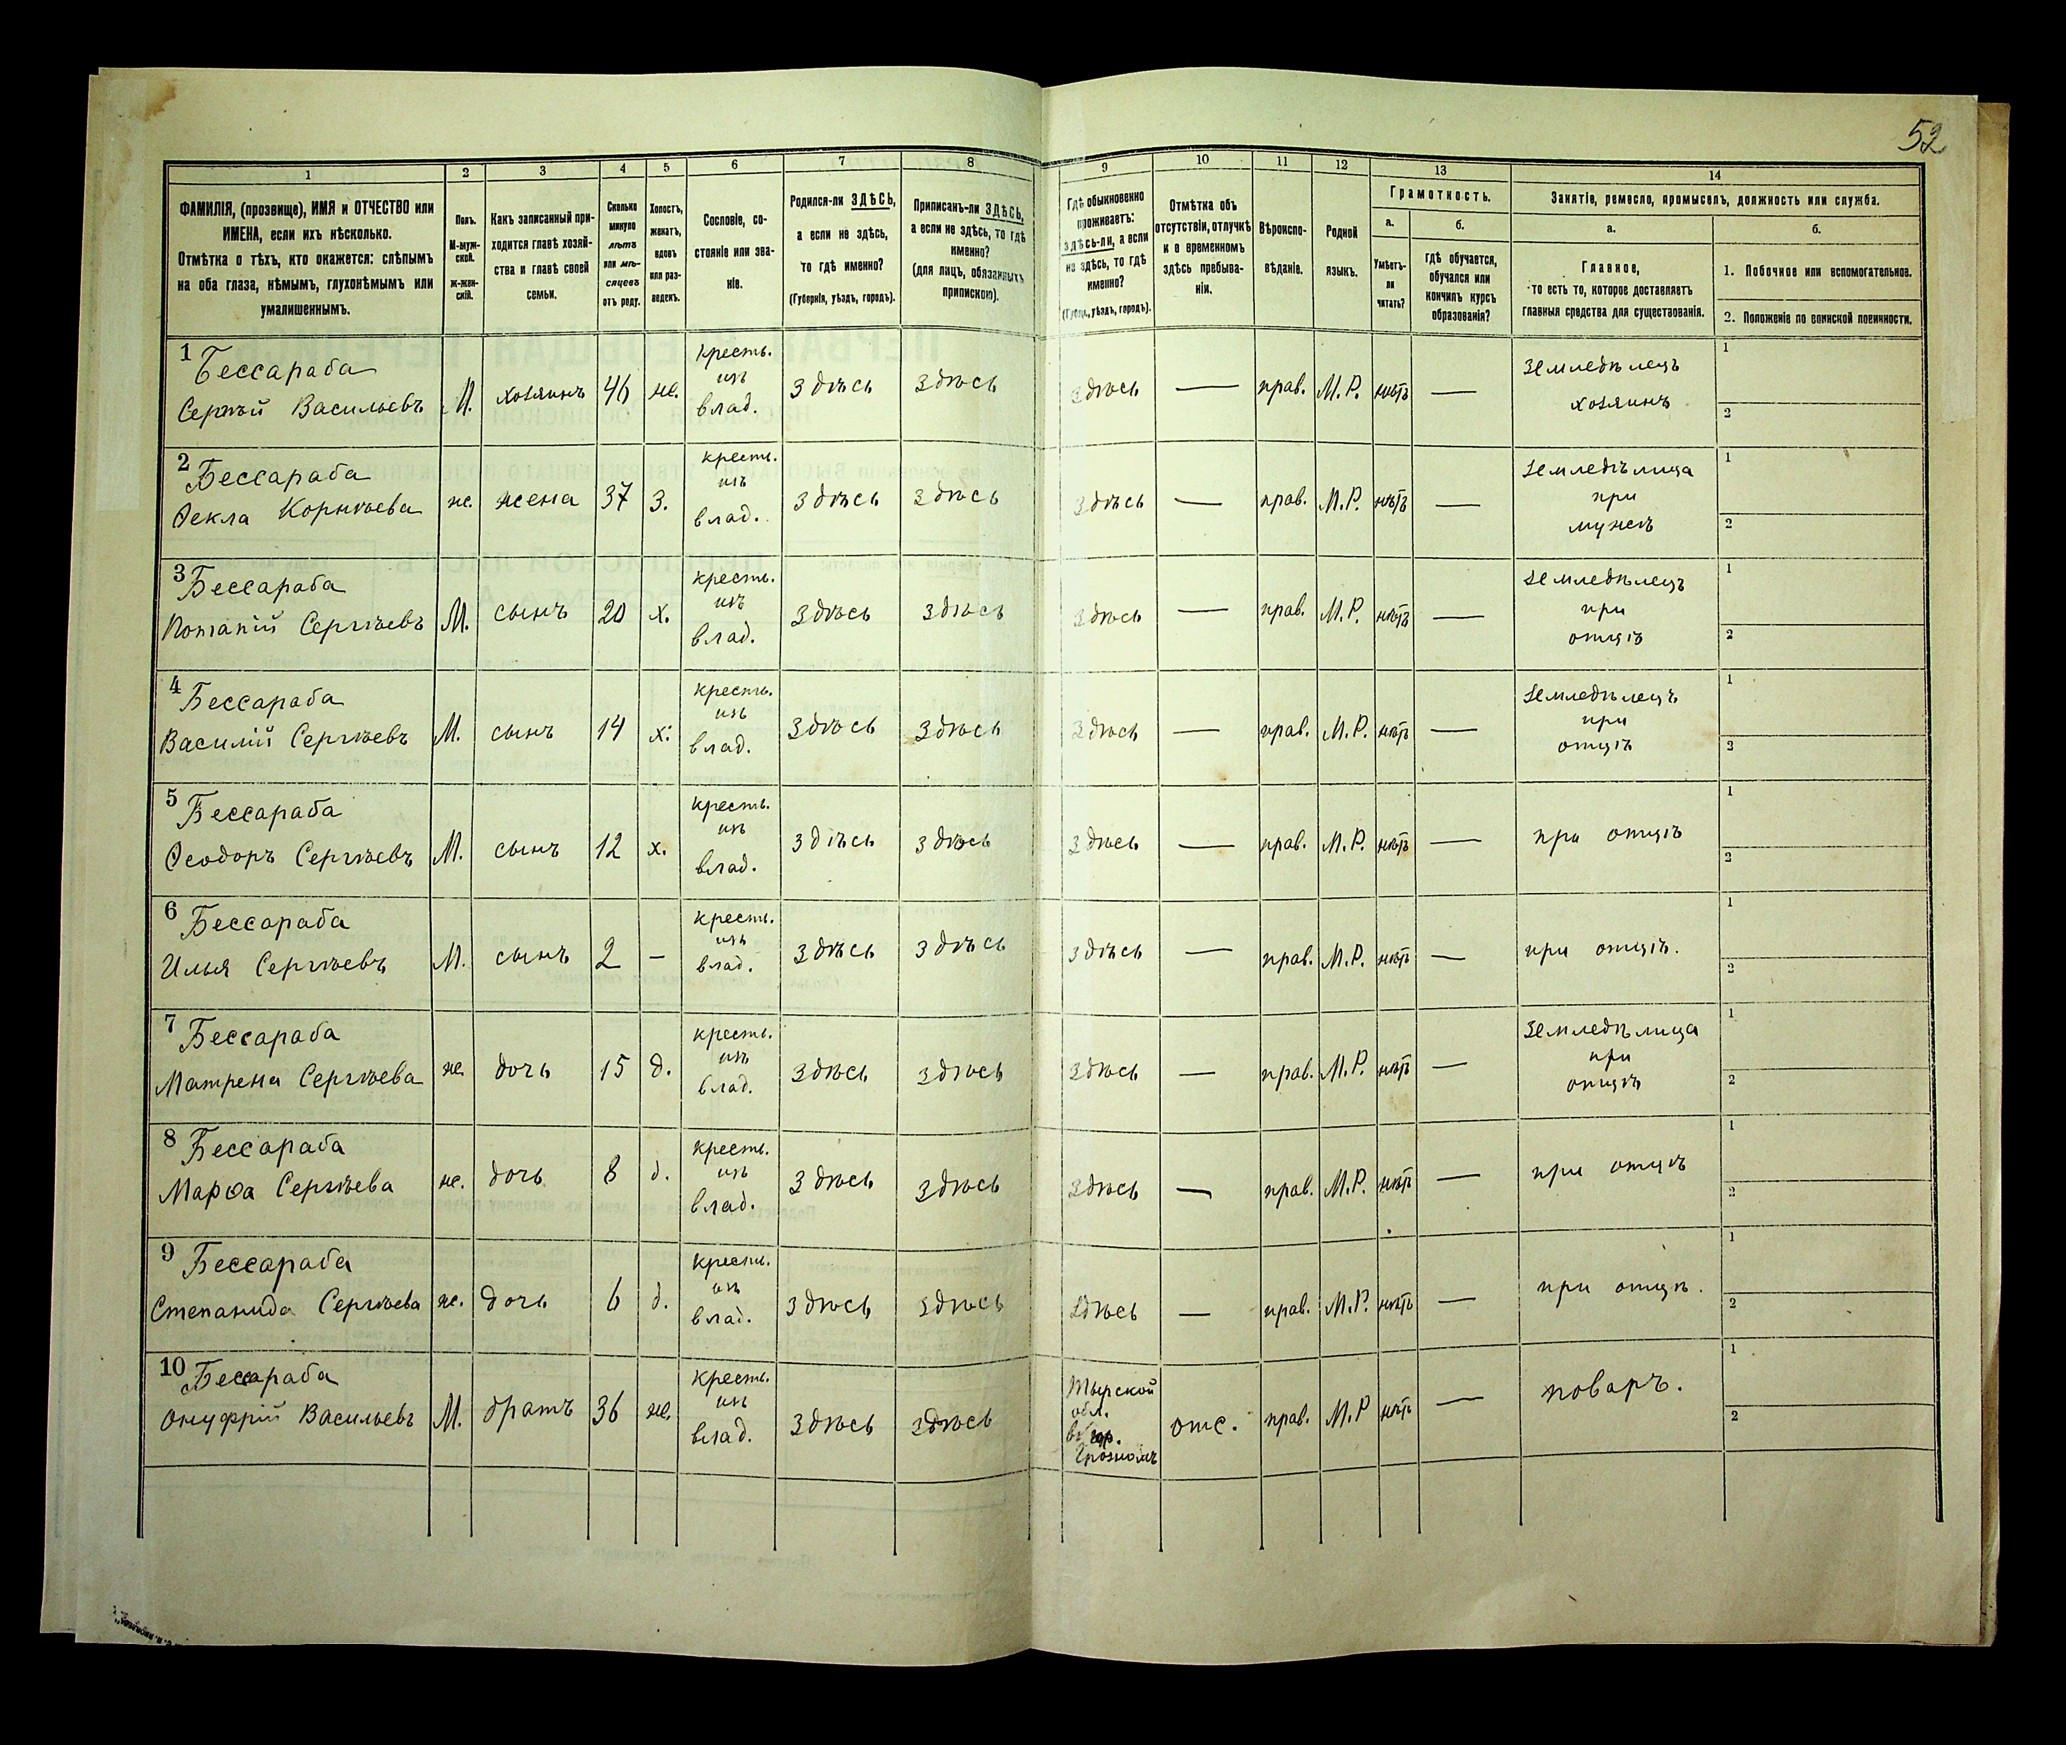 52
1 2 3 4 5 6 7 8 9 10 11 12 13 14
ФАМИЛІЯ, (прозвище), ИМЯ и ОТЧЕСТВО или
ИМЕНА, если ихъ нѣсколько.
Отмѣтка о тѣхъ, кто окажется: слѣпымъ
на оба глаза, нѣмымъ, глухонѣмымъ или
умалишеннымъ.
Полъ.
М-муж-
ской.
ж-жен-
скій.
Какъ записанный при-
ходится главѣ хозяй-
ства и главѣ своей
семьи.
Сколько
минуло
лѣтъ
или мѣ-
сяцевъ
отъ роду.
Холостъ,
женатъ,
вдовъ
или раз-
веденъ.
Сословіе, со-
стояніе или зва-
ніе.
Родился-ли ЗДѢСЬ,
а если не здѣсь,
то гдѣ именно?
(Губернія, уѣздъ, городъ).
Приписанъ-ли ЗДѢСЬ,
а если не здѣсь, то гдѣ
именно?
(для лицъ, обязанныхъ
припискою).
Гдѣ обыкновенно
проживаетъ:
здѣсь-ли, а если
не здѣсь, то гдѣ
именно?
(Губерн., уѣздъ, городъ).
Отмѣтка объ
отсутствіи, отлучкѣ
и о временномъ
здѣсь пребыва-
ніи.
Вѣроиспо-
вѣданіе.
Родной
языкъ.
Грамотность.
а.
Умѣетъ-
ли
читать?
б.
гдѣ обучается,
обучался или
кончилъ курсъ
образованія?
Занятіе, ремесло, промыселъ, должность или служба.
а.
Главное,
то есть то, которое доставляетъ
главныя средства для существованія.
б.
1. Побочное или вспомогательное.
2. Положеніе по воинской повинности.
1 Бессараба
Сергѣй Васильевъ М. хозяинъ 46 же. кресть. изъ влад. здѣсь здѣсь здѣсь — прав. М.Р. нѣтъ — земледѣлецъ хозяинъ 1 2
2 Бессараба
Ѳекла Корнѣева же. жена 37 з. кресть. изъ влад. здѣсь здѣсь здѣсь — прав. М.Р. нѣтъ — земледѣлица при мужѣ 1 2
3 Бессараба
Потапій Сергѣевъ М. сынъ 20 х. кресть. изъ влад. здѣсь здѣсь здѣсь — прав. М.Р. нѣтъ — земледѣлецъ при отцѣ 1 2
4 Бессараба
Василій Сергѣевъ М. сынъ 14 х. кресть. изъ влад. здѣсь здѣсь здѣсь — прав. М.Р. нѣтъ — земледѣлецъ при отцѣ 1 2
5 Бессараба
Ѳеодоръ Сергѣевъ М. сынъ 12 х. кресть. изъ влад. здѣсь здѣсь здѣсь — прав. М.Р. нѣтъ — при отцѣ 1 2
6 Бессараба
Илья Сергѣевъ М. сынъ 2 — кресть. изъ влад. здѣсь здѣсь здѣсь — прав. М.Р. нѣтъ — при отцѣ. 1 2
7 Бессараба
Матрена Сергѣева же. дочь 15 д. кресть. изъ влад. здѣсь здѣсь здѣсь — прав. М.Р. нѣтъ — земледѣлица при отцѣ 1 2
8 Бессараба
Марѳа Сергѣева же. дочь 8 д. кресть. изъ влад. здѣсь здѣсь здѣсь — прав. М.Р. нѣтъ — при отцѣ 1 2
9 Бессараба
Степанида Сергѣева же. дочь 6 д. кресть. изъ влад. здѣсь здѣсь здѣсь — прав. М.Р. нѣтъ — при отцѣ. 1 2
10 Бессараба
Онуфрій Васильевъ М. братъ 36 же. кресть. изъ влад. здѣсь здѣсь Тырской обл. въ гор. Грозномъ отс. прав. М.Р нѣтъ — поваръ. 1 2